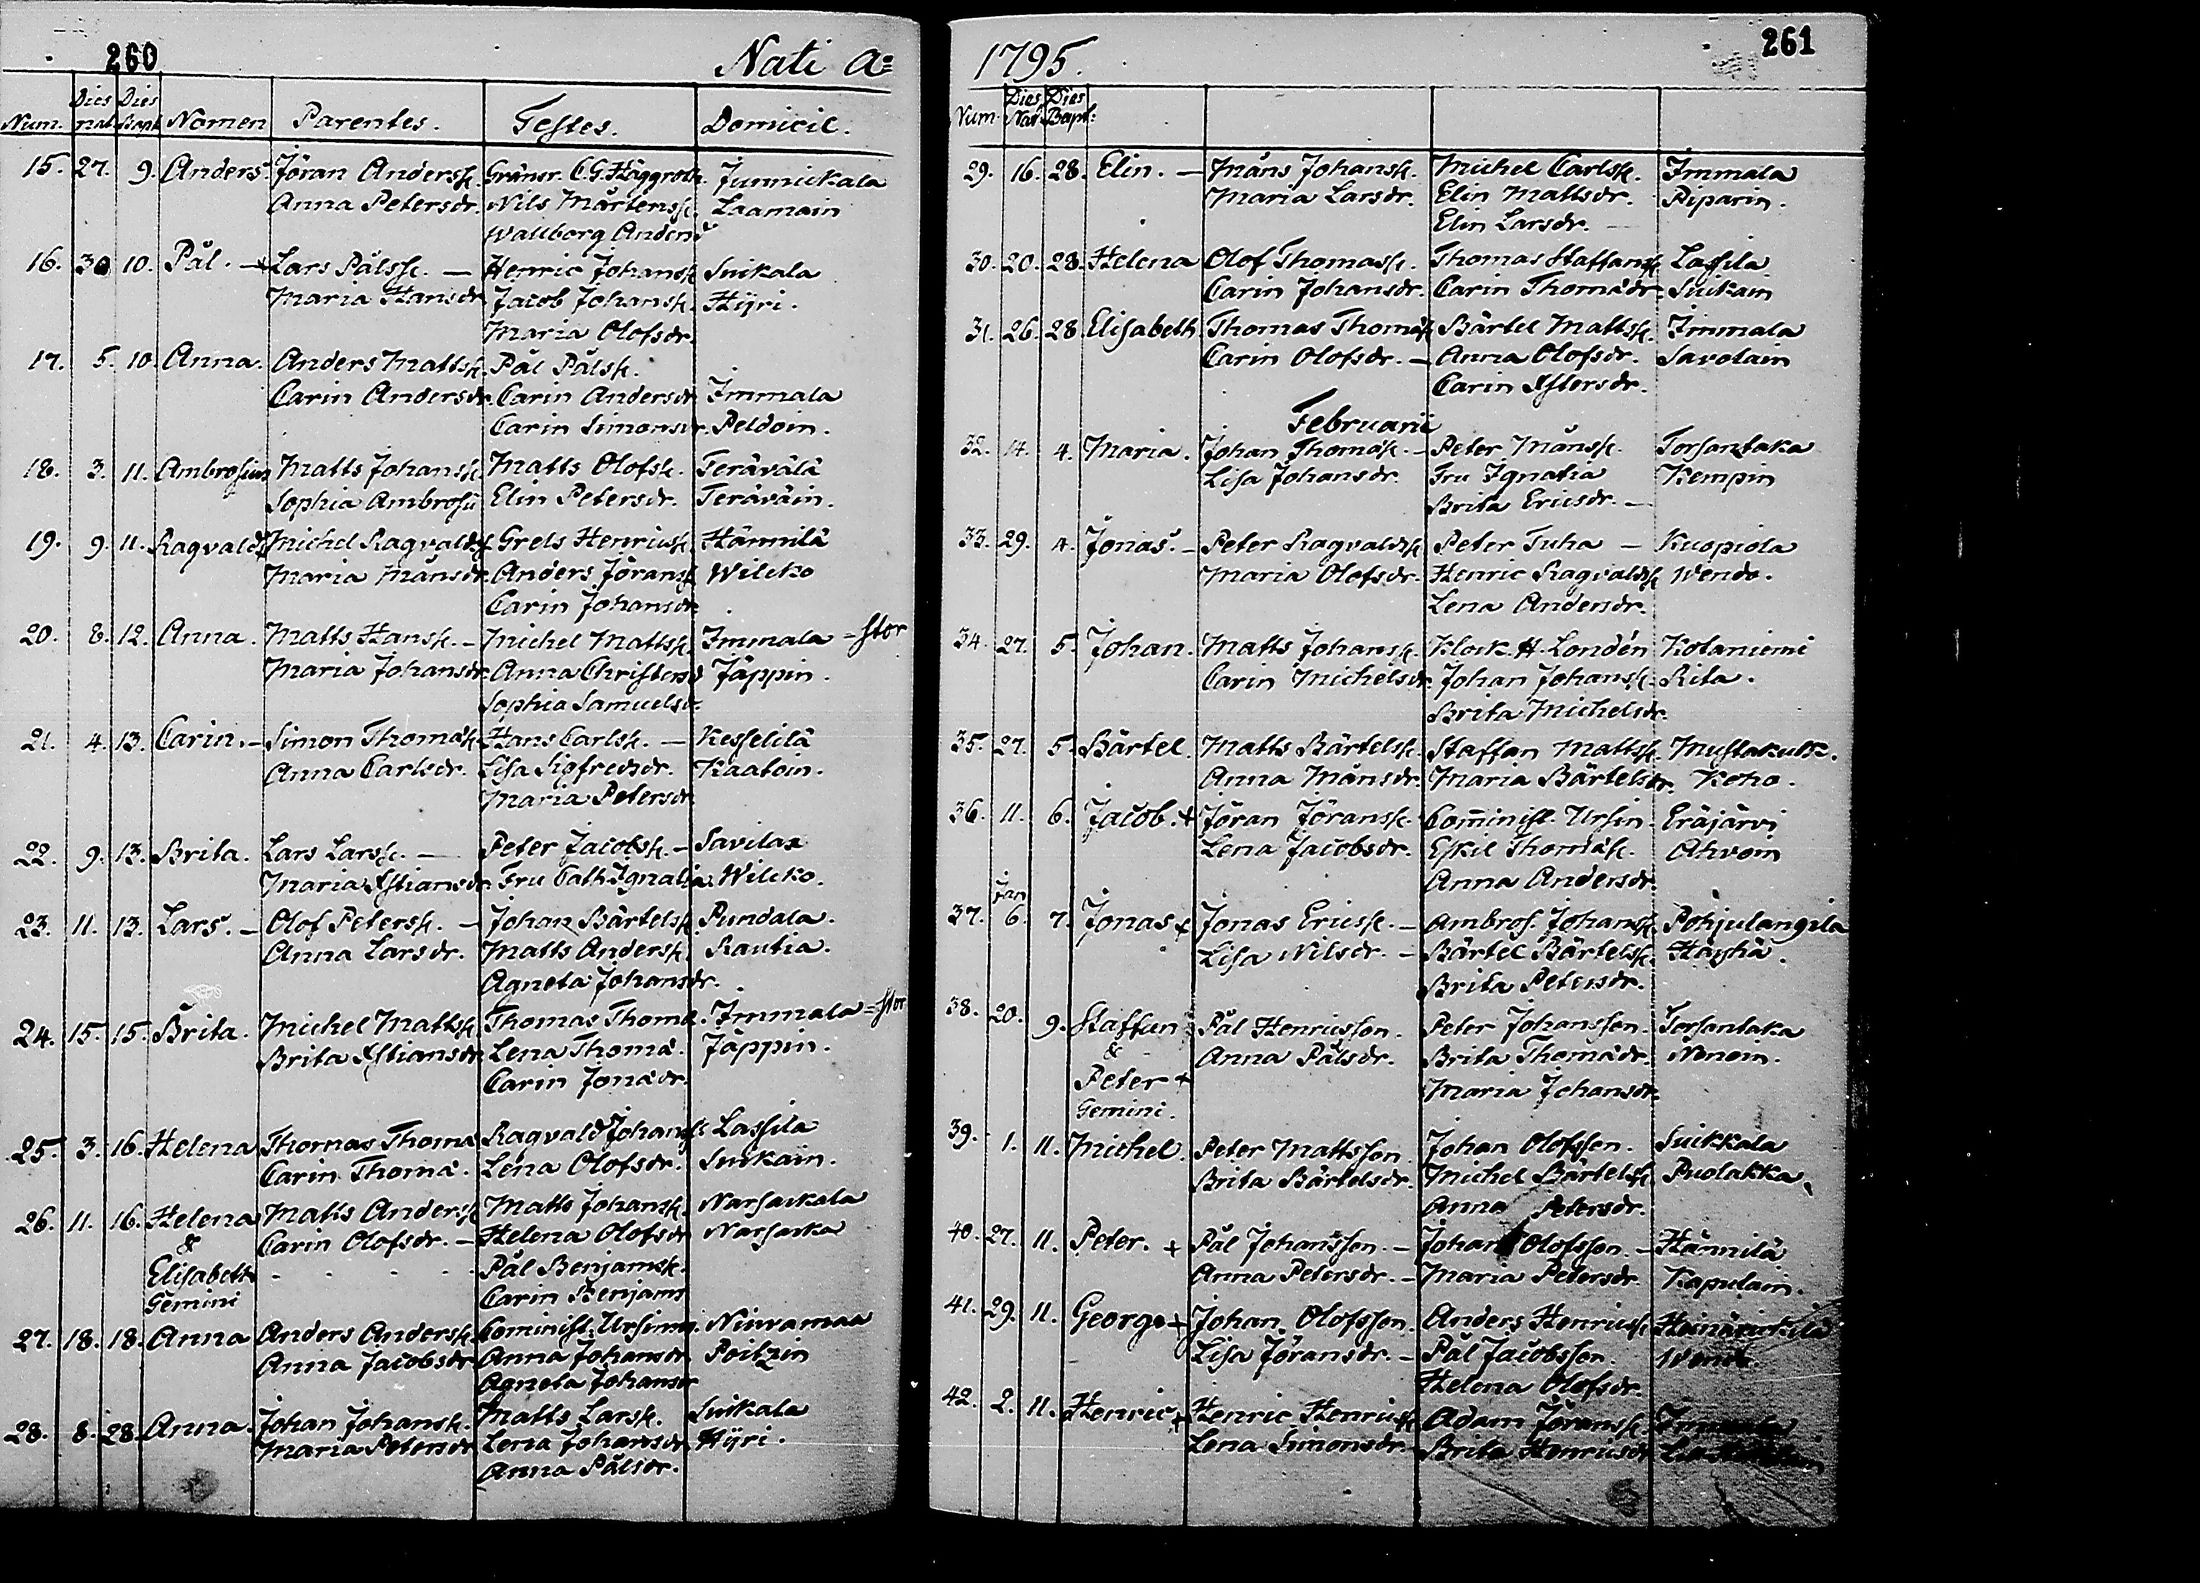 260
Nati A:
Num. Dies nat. Dies Bapt. Nomen Parentes. Testes. Domicil.
15. 27. 9. Anders. Jöran Anderss. Gränsr. C.G. Häggroth. Junnickala
Anna Petersdr. Nils Mårtenss. Laamain
Wallborg Andersd
16. 30 10. Pål. + Lars Pålss. — Henric Johanss. Suikala
Maria Hansdr Jacob Johanss. Hijri.
Maria Olofsdr.
17. 5. 10 Anna. Anders Mattss. Pål Pålss.
Carin Andersdr. Carin Andersdr Immala
Carin Simonsdr. Peldoin.
18. 3. 11. Ambrosius Matts Johanss. Matts Olofss. Terävälä
Sophia Ambrosii Elin Petersdr. Teräväin.
19. 9. 11. Ragvald Michel Ragvaldss. Grels Henricss. Hännilä
Maria Månsdr. Anders Jöranss. Wilcko
Carin Johansdr.
20. 8. 12. Anna. Matts Hanss. — Michel Mattss. Immala = stor
Maria Johansdr. Anna Christersd Jäppin.
Sophia Samuelsdr.
21. 4. 13. Carin. — Simon Thomæss. Hans Carlss. — Kesselilä
Anna Carlsdr. Lisa Sigfredsdr. Kaatoin.
Maria Petersdr
22. 9. 13. Brita. Lars Larss. — Peter Jacobss. — Savilax
Maria Xstiansdr. Fru Cath. Ignatia. Wilcko.
23. 11. 13. Lars. — Olof Peterss. — Johan Bärtelss. Pundala.
Anna Larsdr. Matts Anderss. Rautia.
Agneta Johansdr.
24. 15. 15. Brita. Michel Mattss. Thomas Thomæ. Immala = stor
Brita Xstiansdr Lena Thomæ. Jäppin.
Carin Jonædr.
25. 3. 16. Helena Thomas Thomæ Ragvald Johanss. Lassila
Carin Thomæ. Lena Olofsdr. Suikain.
26. 11. 16. Helena Matts Anderss. Matts Johanss. Narsackala
& Carin Olofsdr. — Helena Olofsdr Narsacka
Elisabeth Pål Benjamss.
Gemini Carin Benjams
27. 18. 18. Anna Anders Anderss. Cominist. Ursinus. Niuramaa
Anna Jacobsdr Anna Johansdr Poitzin
Agneta Johansdr
28. 8. 28. Anna. Johan Johanss. Matts Larss. Suikala
Maria Petersdr Lena Johansdr Hijri.
Anna Pålsdr.
1795.
261
Num. Dies Nat. Dies Bapt:
29. 16. 28. Elin. — Måns Johanss. Michel Carlss. Immala
Maria Larsdr. Elin Mattsdr. Piparin.
Elin Larsdr. —
30. 20. 28. Helena Olof Thomass. Thomas Staffanss. Lassila
Carin Johansdr. Carin Thomædr. Suikain
31. 26. 28 Elisabeth Thomas Thomæss. Bärtel Mattss. Immala
Carin Olofsdr. — Anna Olofsdr. Savolain
Carin Xstersdr.
Februarii
32. 14. 4. Maria. Johan Thomæss. — Peter Månss. Torsantaka
Lisa Johansdr Fru Ignatia Kempin
Brita Ericsdr. —
33. 29. 4. Jonas. — Peter Ragvaldss. Peter Tuha — Kuopiola
Maria Olofsdr. Henric Ragvaldss. Wendo.
Lena Andersdr.
34. 27. 5. Johan. Matts Johanss. Klock. H. Londén Kotaniemi
Carin Michelsdr. Johan Johanss. Rita.
Brita Michelsdr.
35. 27. 5. Bärtel. Matts Bärtelss. Staffan Mattss. Mustakulk.
Anna Månsdr. Maria Bärtelsdr. Koho.
36. 11. 6. Jacob. + Jöran Jöranss. Com̄inist. Ursin. Eräjärvi
Lena Jacobsdr. Eskil Thomæss. Ahvoin
Anna Andersdr.
Jan
37. 6. 7. Jonas + Jonas Ericss. — Ambros. Johanss. Pohjulangila
Lisa Nilsdr. — Bärtel Bärtelss. Häyhä.
Brita Petersdr.
38. 20. 9. Staffan Pål Henricsson. Peter Johansson. Torsantaka
& Anna Pålsdr. Brita Thomædr. Nenoin.
Peter + Maria Johansdr.
Gemini.
39. 1. 11. Michel. Peter Mattsson Johan Olofsson. Suikkala
Brita Bärtelsdr. Michel Bärtelss. Puolakka.
Anna Petersdr.
40. 27. 11. Peter. + Pål Johansson. — Johan Olofsson. — Hännilä
Anna Petersdr. — Maria Petersdr. Kapulain.
41. 29. 11. George + Johan Olofsson. Anders Henricss.
Lisa Jöransdr. — Pål Jacobsson.
Helena Olofsdr.
42. 2. 11. Henric + Henric Henricss. Adam Jöranss. Immala
Lena Simonsdr. Brita Henricsdr